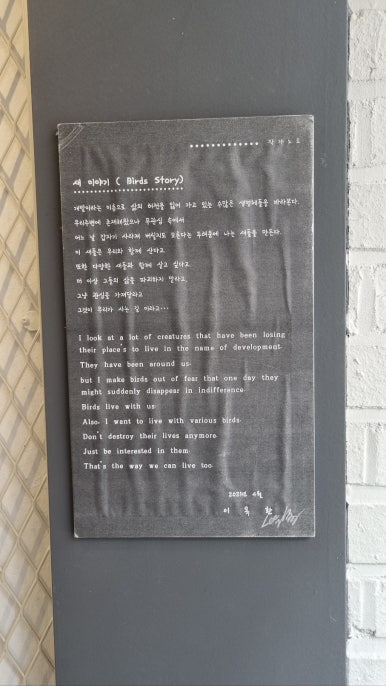 작가노트
새 이야기 ( Birds Story)
개발이라는 이름으로 삶의 터전을 잃어 가고 있는 수많은 생명체들을 바라본다.
우리주변에 존재해왔으나 무관심 속에서
어느 날 갑자기 사라져 버릴지도 모른다는 두려움에 나는 새들을 만든다.
이 새들은 우리와 함께 산다고.
또한 다양한 새들과 함께 살고 싶다고.
더 이상 그들의 삶을 파괴하지 말라고.
그냥 관심을 가져달라고
그것이 우리가 사는 길 이라고...
I look at a lot of creatures that have been losing
their place's to live in the name of development.
They have been around us.
but I make birds out of fear that one day they
might suddenly disappear in indifference.
Birds live with us.
Also, I want to live with various birds.
Don't destroy their lives anymore.
Just be interested in them.
That's the way we can live too.
2021년 4월
이 옥 환